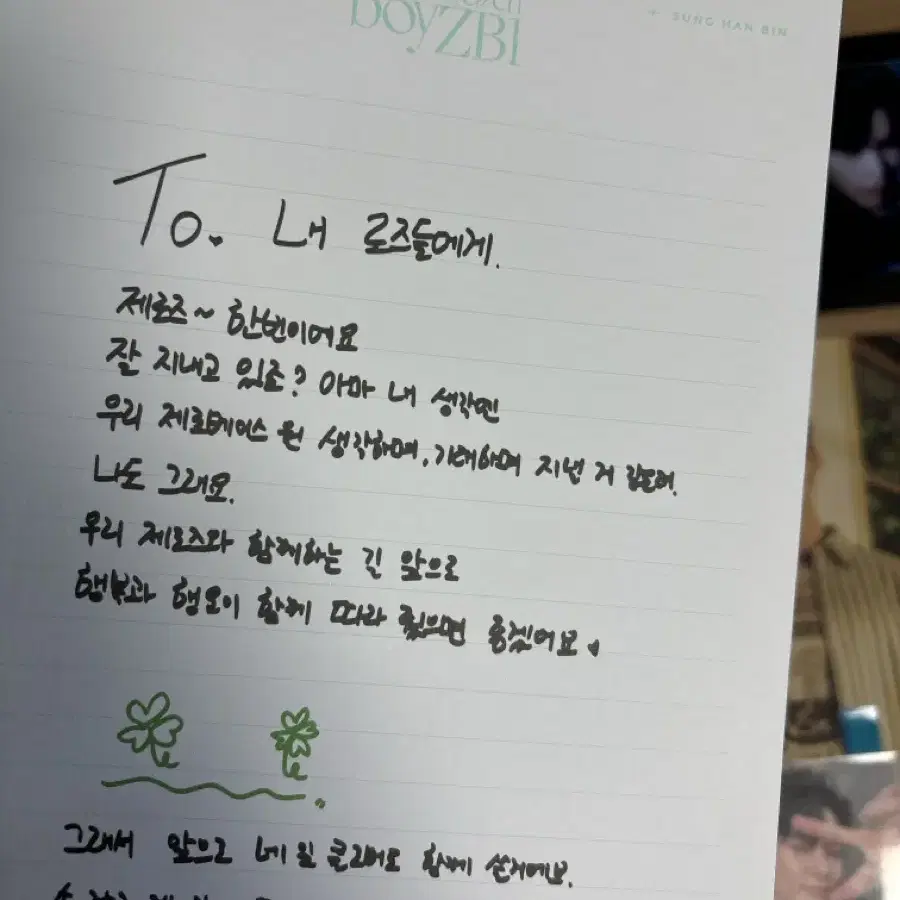 boyZB1
+ SUNG HAN BIN
To. 내 로즈들에게.
제로즈~ 한빈이어요
잘 지내고 있죠? 아마 내 생각엔
우리 제로베이스 원 생각하며, 기대하며 지낸 거
나도 그래요.
우리 제로즈와 함께하는 길 앞으로
행복과 행운이 함께 따라 줬으면 좋겠어요
그래서 앞으로 네 잎 클로버도 함께 쓸거에요.